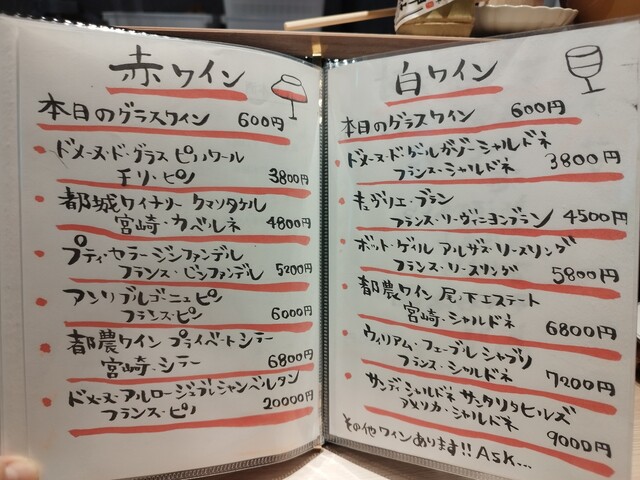 赤ワイン
本日のグラスワイン 600円
ドメーヌ・ド・グラス ピノノワール
チリ・ピノ 3800円
都城ワイナリー クマソタケル
宮崎・カベルネ 4800円
プティ・セラー ジンファンデル
フランス・ジンファンデル 5200円
アンリ ブルゴーニュ ピノ
フランス・ピノ 6000円
都農ワイン プライベートシラー
宮崎・シラー 6800円
フランス・ピノ 20000円
白ワイン
本日のグラスワイン 600円
フランス・シャルドネ 3800円
キュヴリエ・ブラン
4500円
ボット・ゲイル アルザス・リースリング
フランス・リースリング 5800円
都農ワイン 尾ノ下エステート
宮崎・シャルドネ 6800円
ウィリアム・フェーブル シャブリ
フランス・シャルドネ 7200円
アメリカ・シャルドネ 9000円
その他ワインあります!! Ask...